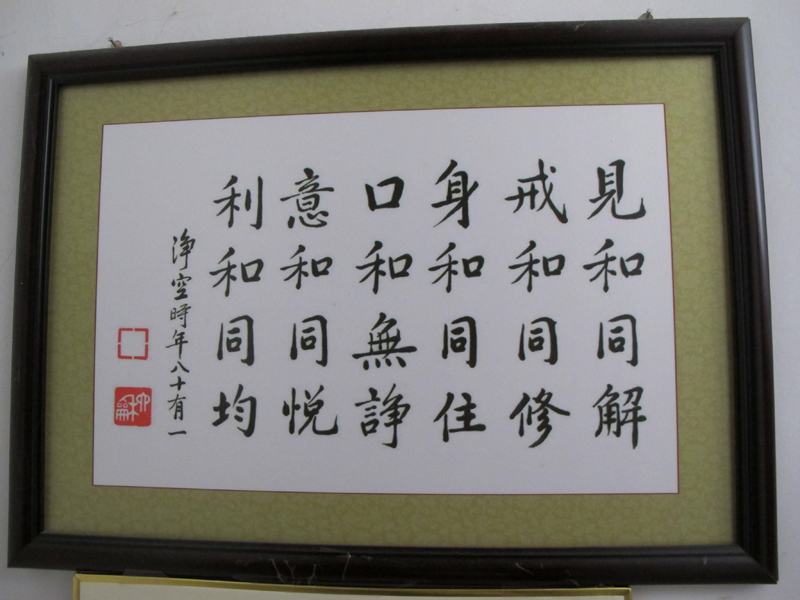 見和同解
戒和同修
身和同住
口和無諍
意和同悅
利和同均
淨空時年八十有一